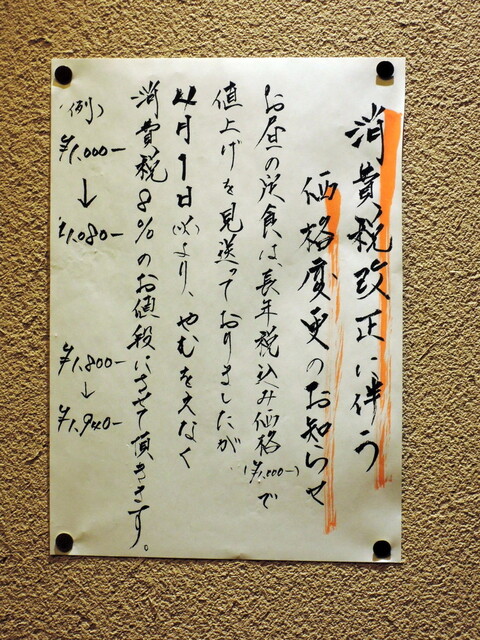 消費税改正に伴う
価格変更のお知らせ
お昼の定食は、長年税込み価格(¥1,000-)で
値上げを見送っておりましたが
4月1日(火)より、やむをえなく
消費税8%のお値段にさせて頂きます。
(例)
¥1,000-
↓
¥1,080-
¥1,800-
↓
¥1,940-